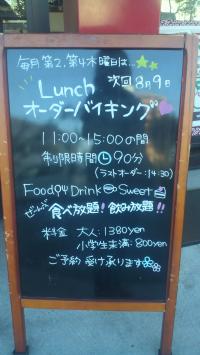 毎月第2、第4木曜日は…
Lunch 次回8月9日
オーダーバイキング
11:00~15:00の間
制限時間 90分
(ラストオーダー:14:30)
Food Drink Sweet
ぜーんぶ 食べ放題!飲み放題!!
料金 大人:1380yen
小学生未満:800yen
ご予約 受け承ります